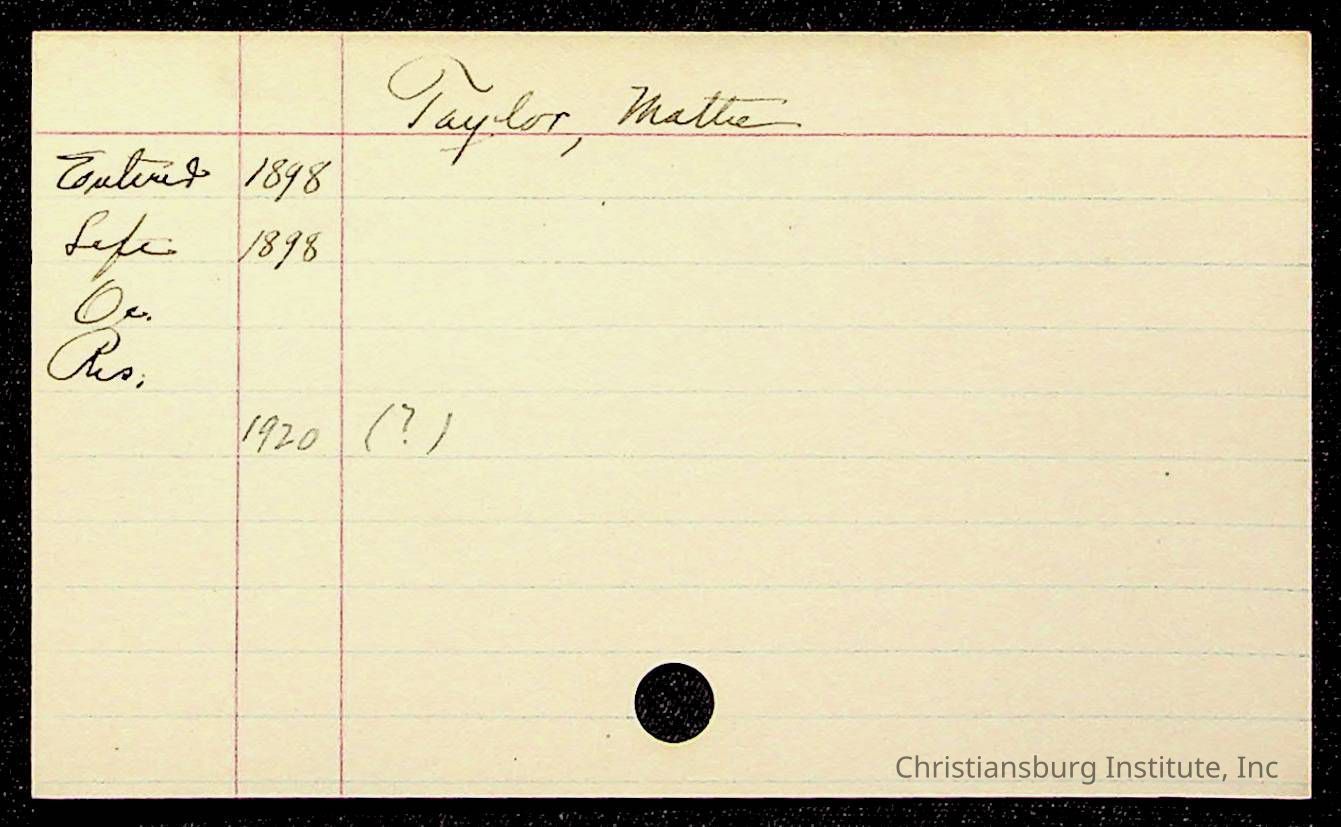 Taylor, Mattie
Entered 1898
Left 1898
Oc.
Res.
1920 (?)
Christiansburg Institute, Inc